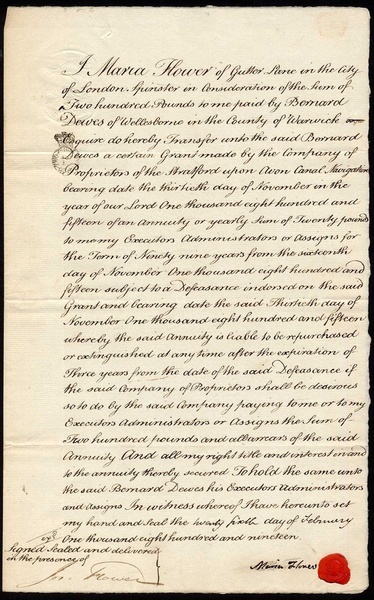 I Maria Flower of Gutter Lane in the City
of London Spinster in Consideration of the Sum of
Two hundred Pounds to me paid by Bernard
Dewes of Wellesborne in the County of Warwick
Esquire do hereby Transfer unto the said Bernard
Dewes a certain Grant made by the Company of
Proprietors of the Stratford upon Avon Canal Navigation
bearing date the thirtieth day of November in the
year of our Lord One thousand eight hundred and
fifteen of an Annuity or yearly Sum of Twenty pounds
to me my Executors Administrators or Assigns for
the Term of Ninety nine years from the sixteenth
day of November One thousand eight hundred and
fifteen subject to a Defeasance indorsed on the said
Grant and bearing date the said Thirtieth day of
November One thousand eight hundred and fifteen
whereby the said Annuity is liable to be repurchased
or extinguished at any time after the expiration of
Three years from the date of the said Defeasance if
the said Company of Proprietors shall be desirous
so to do by the said Company paying to me or to my
Executors Administrators or Assigns the Sum of
Two hundred pounds and all arrears of the said
Annuity And all my right title and interest in and
to the annuity thereby secured To hold the same unto
the said Bernard Dewes his Executors Administrators
and Assigns. In witness whereof I have hereunto set
my hand and Seal the twenty sixth day of February
One thousand eight hundred and nineteen.
Signed Sealed and delivered
in the presence of
Maria Flower
Flower